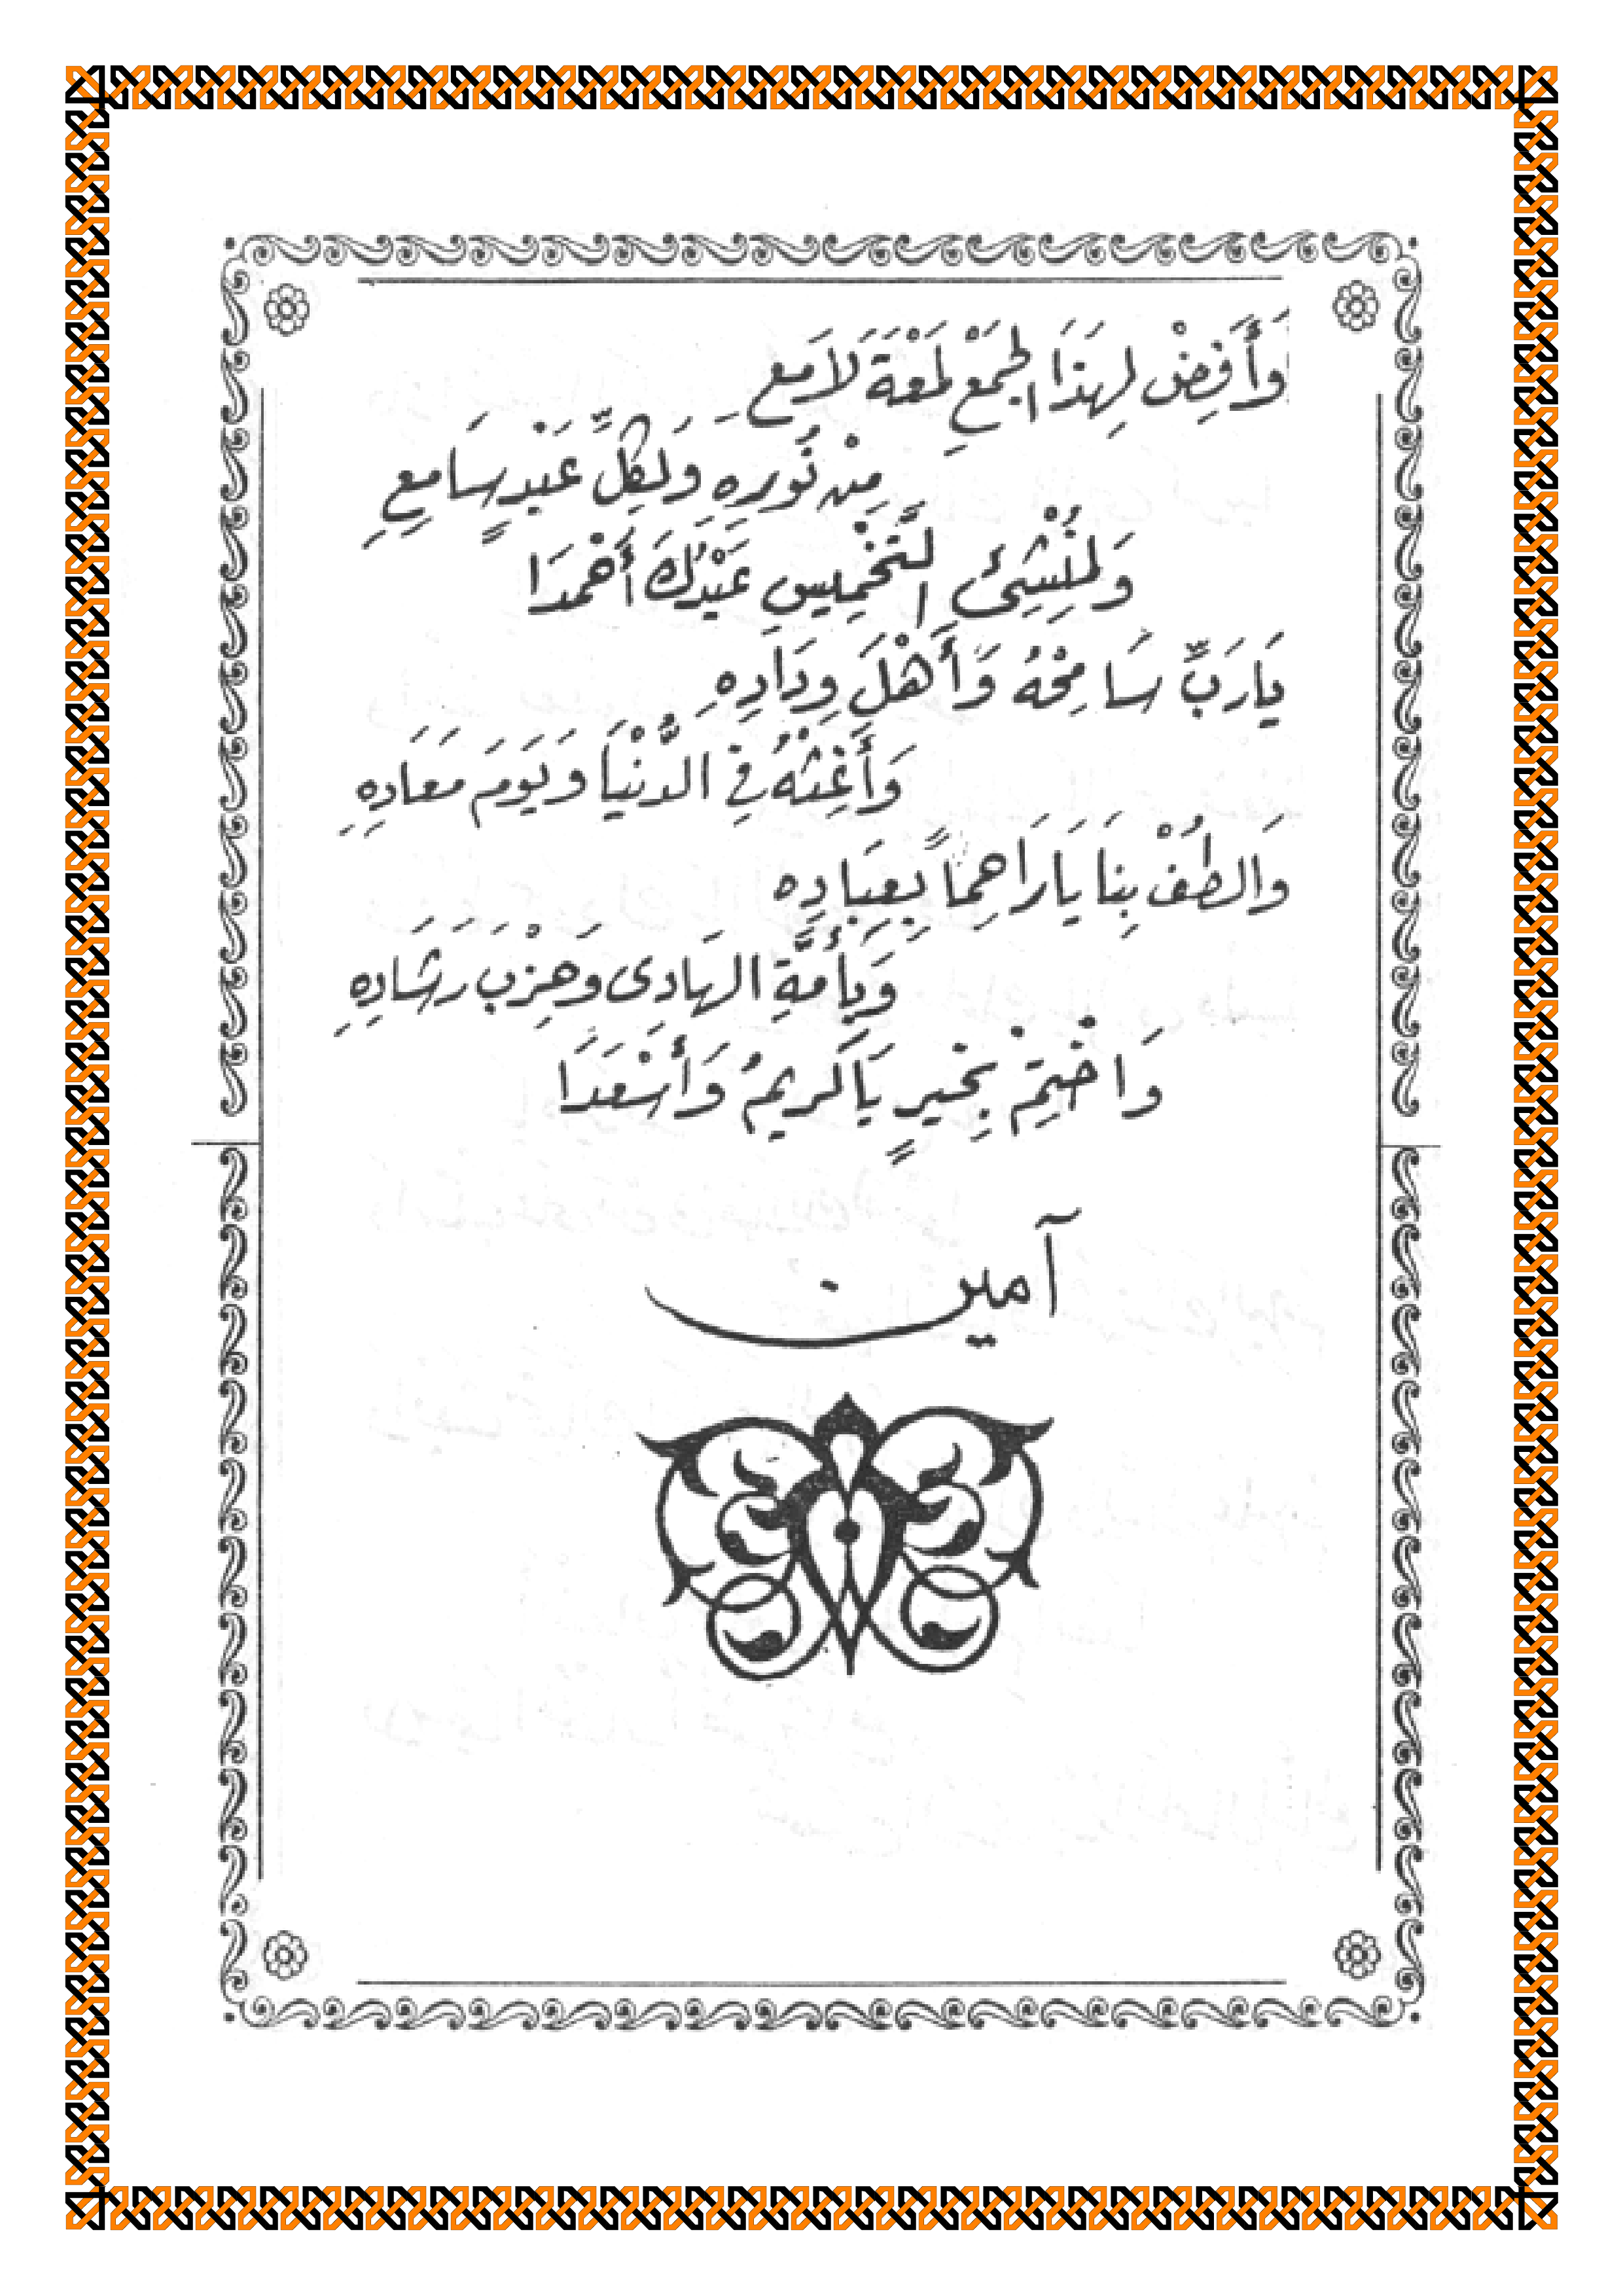 وَأَفِضْ لِهَذَا الْجَمْعِ لَمْعَةَ لَامِعِ
مِنْ نُورِهِ وَلِكُلِّ عَبْدٍ سَامِعِ
وَلِمُنْشِئِ التَّخْمِيسِ عَبْدُكَ أَحْمَدَا
يَارَبِّ سَامِحْهُ وَأَهْلَ وِدَادِهِ
وَأَغِثْهُ فِي الدُّنْيَا وَيَوْمَ مَعَادِهِ
وَالطُفْ بِنَا يَا رَاحِماً بِعِبَادِهِ
وَبِأُمَّةِ الهَادِى وَحِزْبَ رَشَادِهِ
وَاخْتِمْ بِخَيرٍ يَاكَرِيمُ وَأَسْعَدَا
آمين